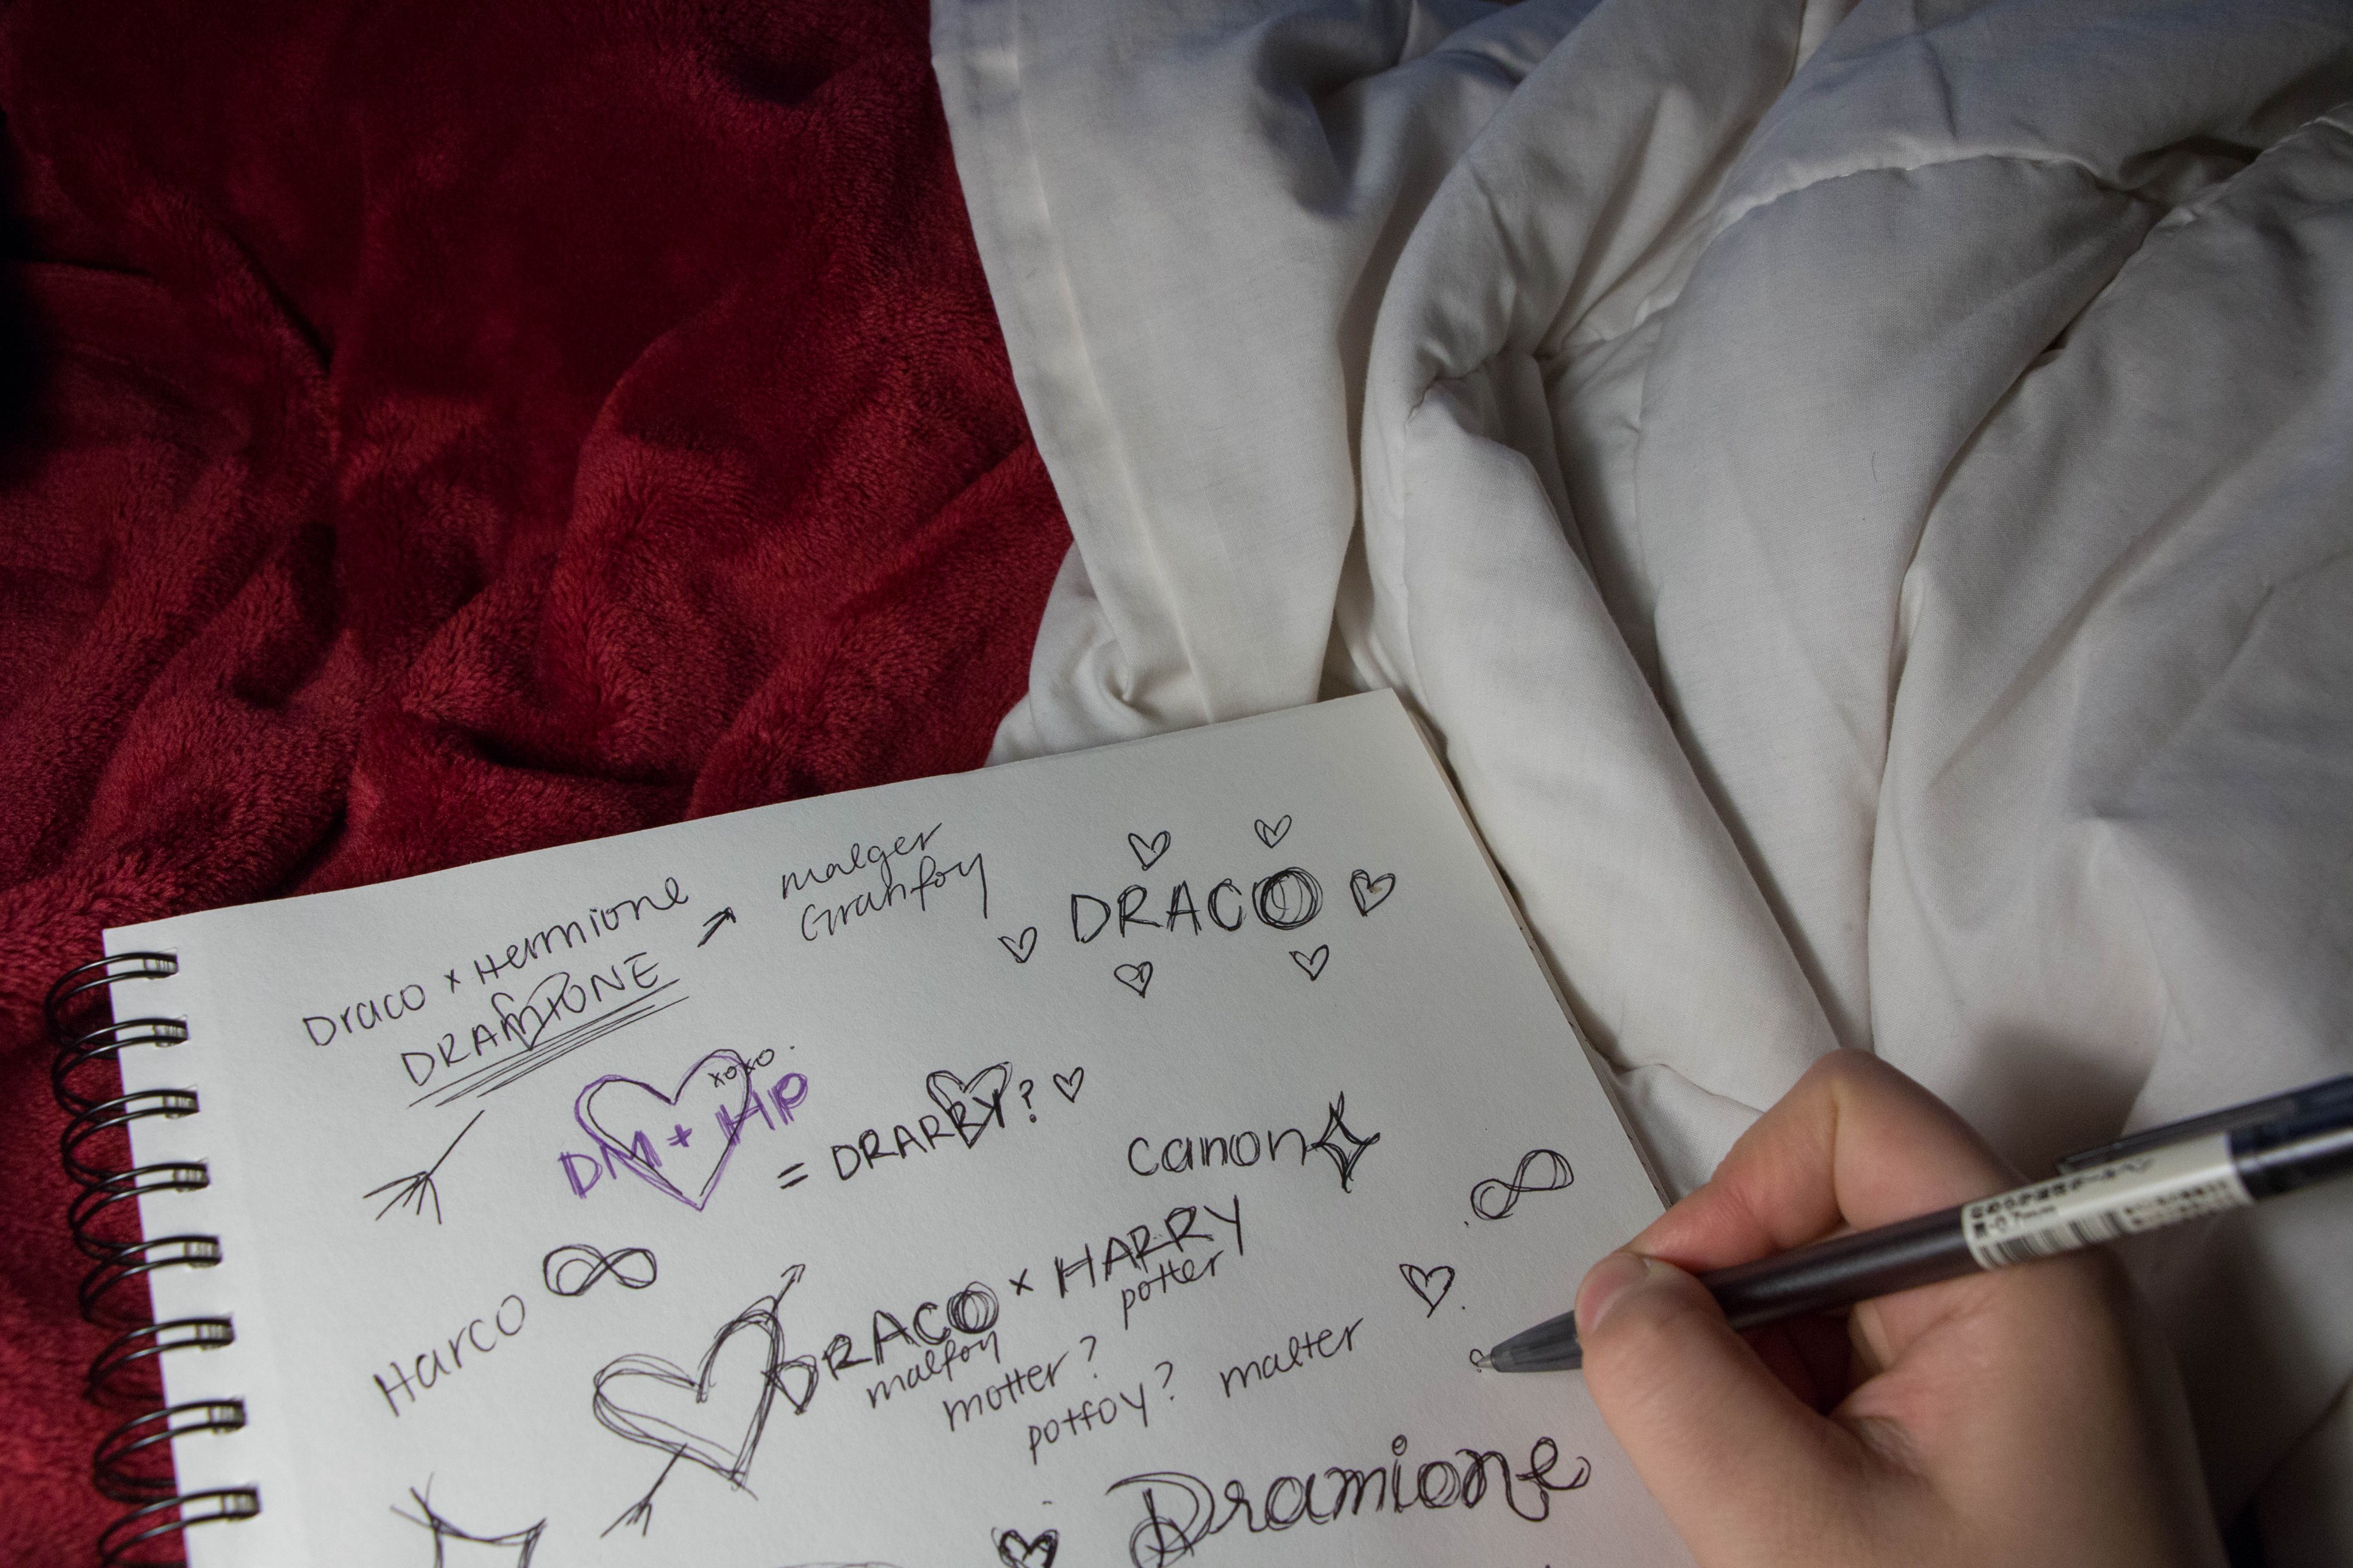 Draco x Hermione
DRAMIONE
malger
Granfoy
DRACO
xoxo.
DM + HP
= DRARRY?
canon
Harco
DRACO x HARRY
malfoy potter
motter?
potfoy? malter
Dramione